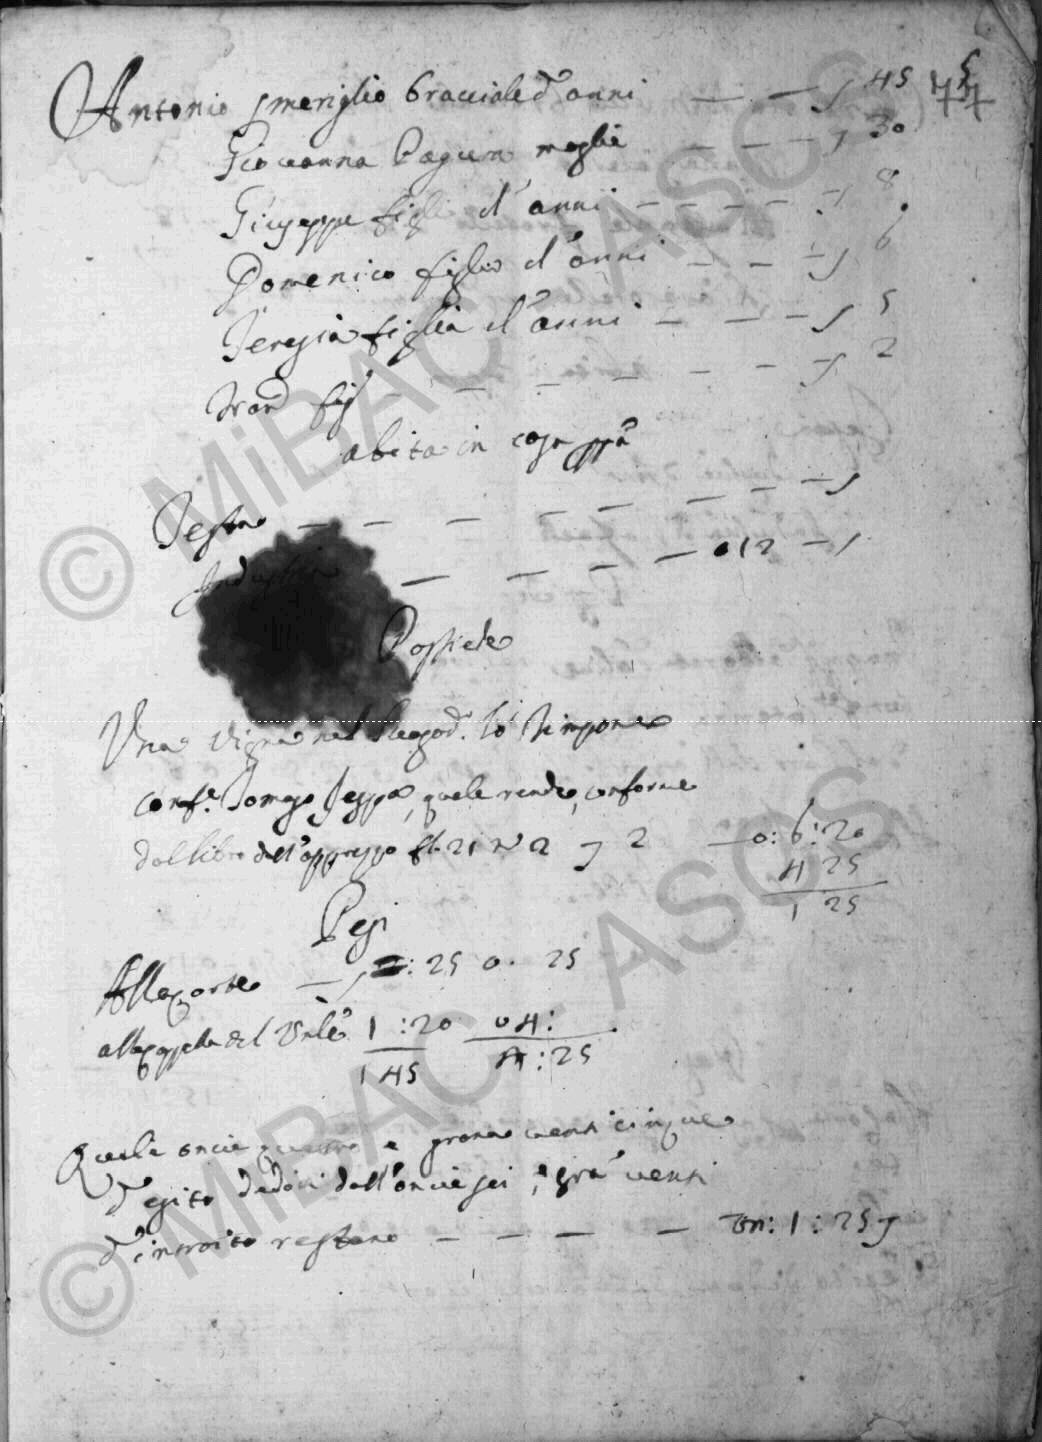 Antonio Smeriglio bracciale d'anni — — 45
Giovanna Pagura moglie — — — 30
Giuseppe figlio d'anni — — — — — 8
Domenico figlio d'anni — — — 6
Teresia figlia d'anni — — — 5
fig. — — — — — — — 2
abita in casa ppa
Testa — — — — — — — —
Industria — — — — 012 —
Possiede
Una vigna nel loco d. lo Timpone
conf.e quale rende, conforme
dal libro dell'apprezzo fl. 21 n 2 2 — 0: 6: 20
4 25
1 25
Pesi
Alla corte — : 25 0. 25
alla cappella del 1 : 20 04:
1 45 4 : 25
Quali oncie quattro e grana venti cinque
d'esito dall'oncie sei, e gra venti
d'introito restano — — — — on: 1 : 25
© MiBAC - ASCS
© MiBAC - ASCS